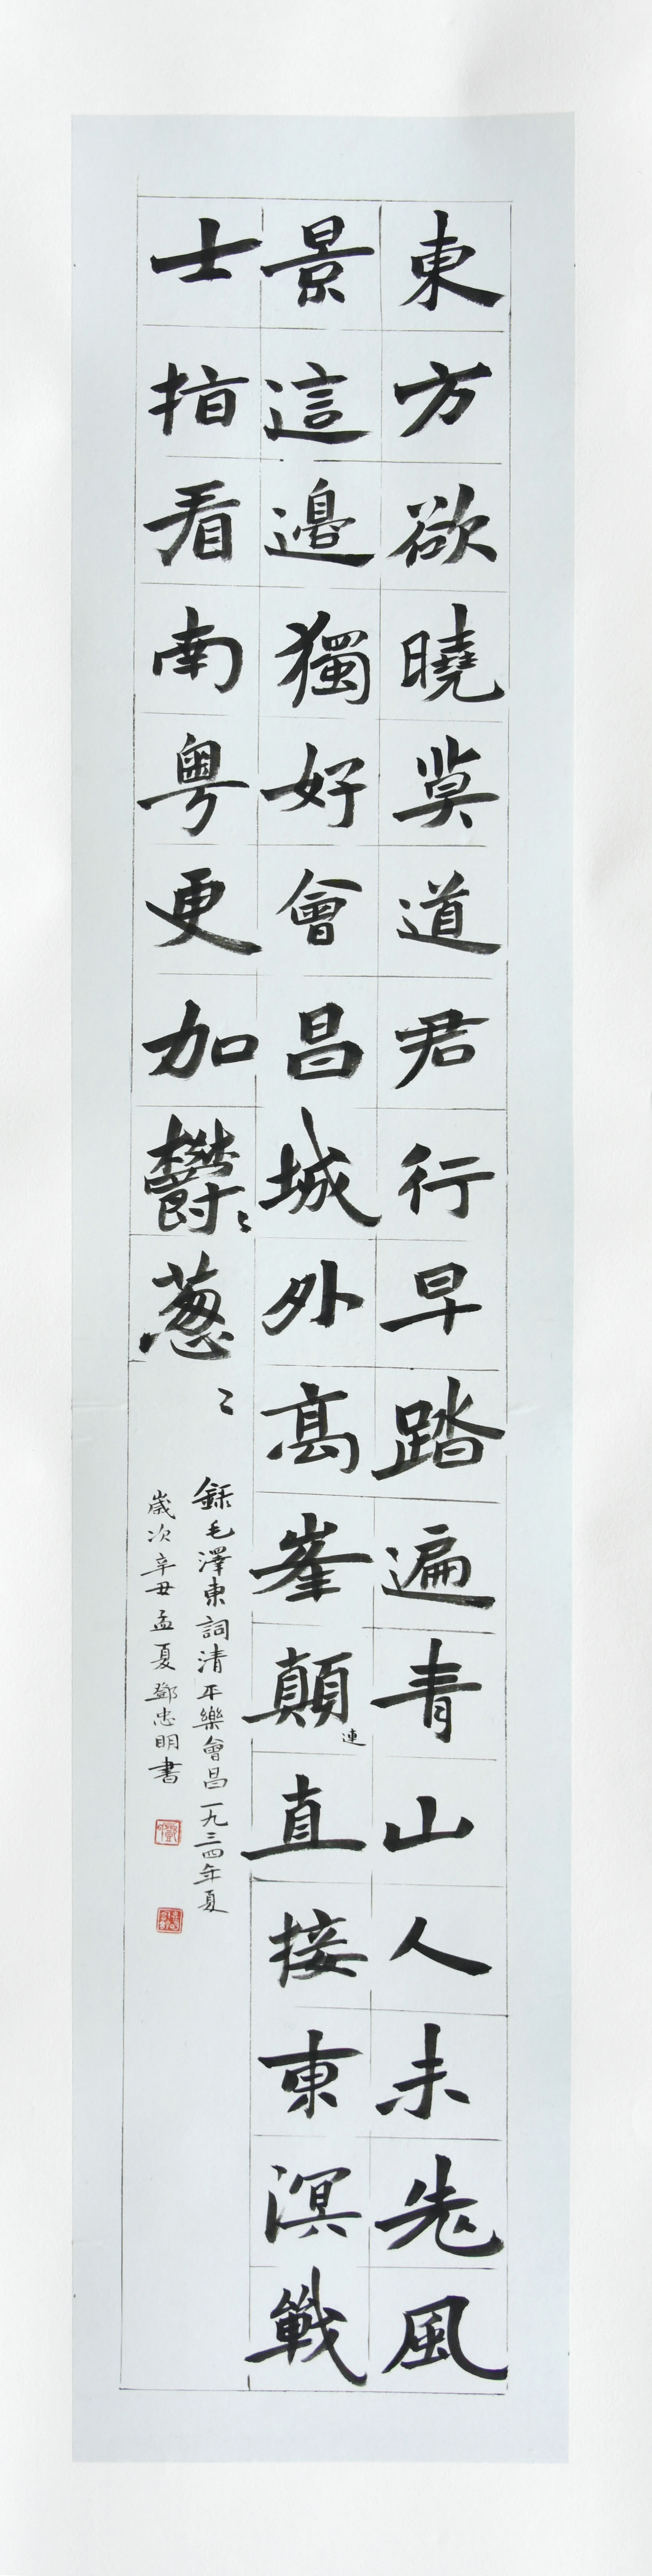 東方欲曉莫道君行早踏遍青山人未先風
景這邊獨好會昌城外高峯顛連直接東溟戰
士指看南粤更加鬱〻葱〻
錄毛澤東詞清平樂會昌一九三四年夏
歲次辛丑孟夏鄧忠明書